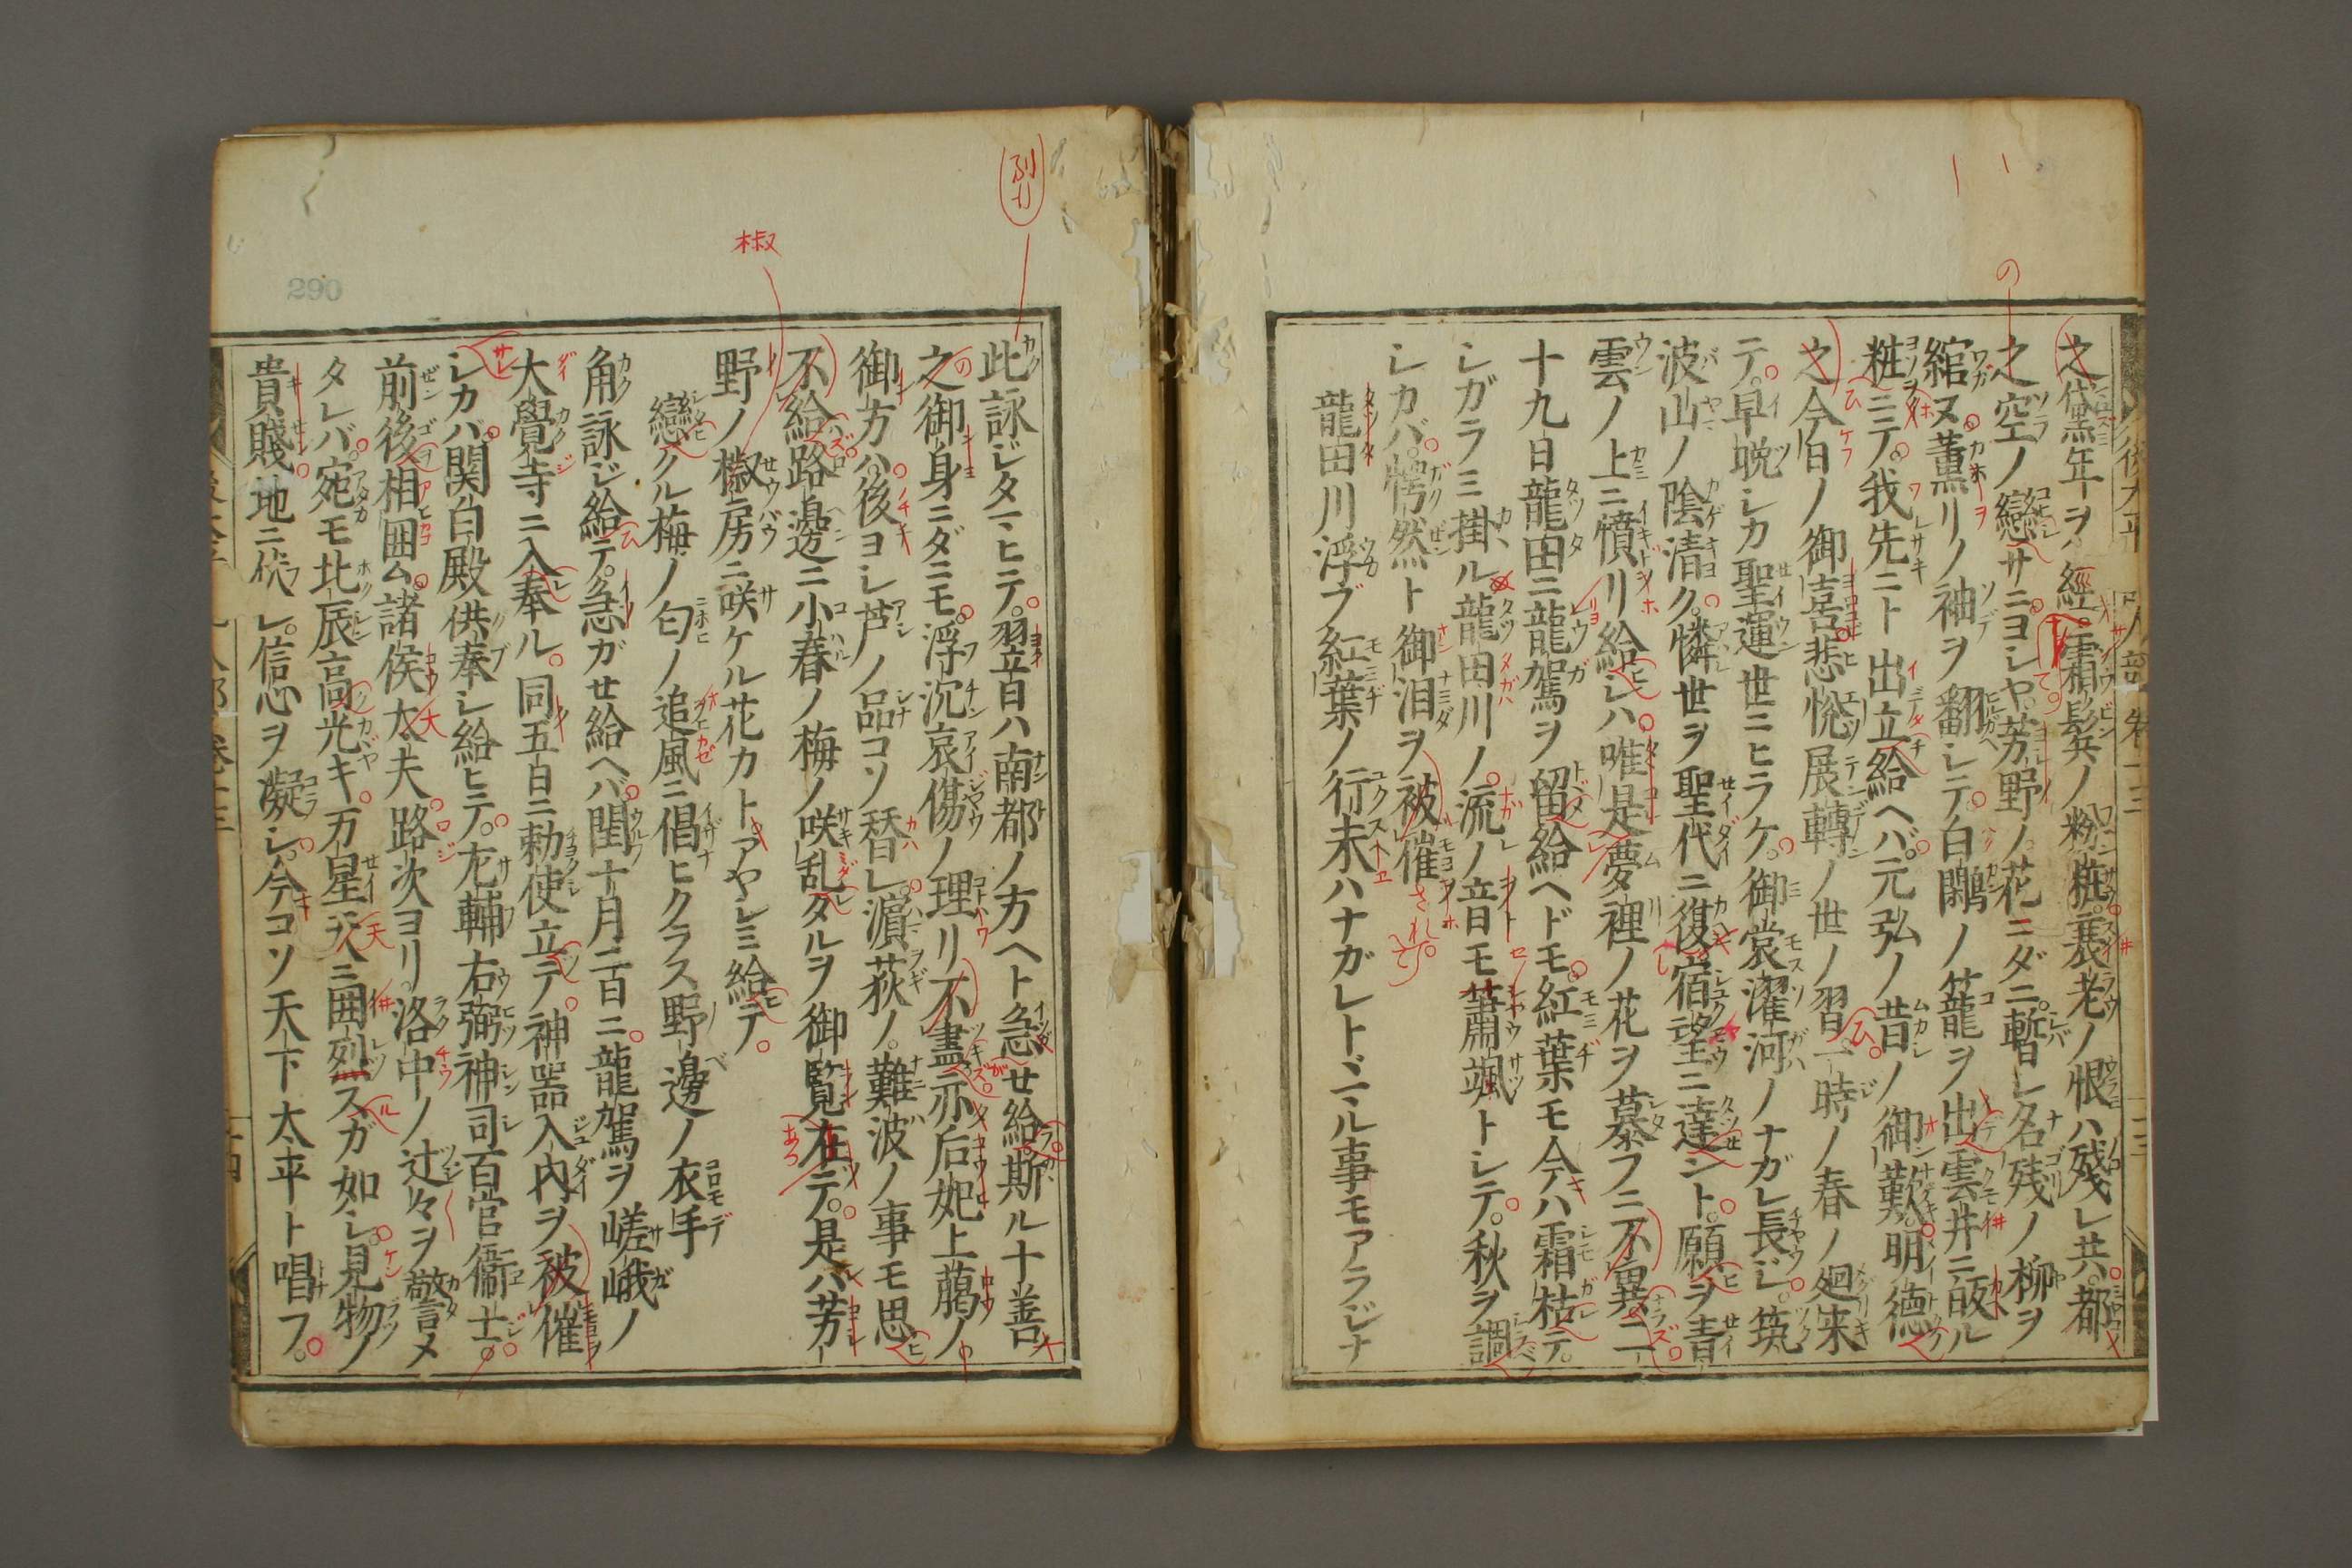 之黛年ヲ經霜鬂ノ粉粧衰老ノ恨ハ殘レ共都
之空ノ戀サニヨシヤ芳野ノ花ニダニ暫シ名残ノ柳ヲ
綰ヌ薫リノ袖ヲ翻シテ白鷴ノ篭ヲ出雲井ニ皈ル
粧ニテ我先ニト出立給ヘバ元弘ノ昔ノ御歎明徳
之今日ノ御喜悲悦展轉ノ世ノ習一時ノ春ノ廻来
テ早晩シカ聖運世ニヒラケ御裳濯河ノナガレ長ジ筑
波山ノ陰清ク憐世ヲ聖代ニ復宿望ニ達ント願ヲ青
雲ノ上ニ憤リ給シハ唯是夢裡ノ花ヲ慕フニ不異二
十九日龍田ニ龍駕ヲ留給ヘドモ紅葉モ今ハ霜枯テ
シガラミ掛ル龍田川ノ流ノ音モ蕭颯トシテ秋ヲ調
シカバ愕然ト御泪ヲ被催
龍田川浮ブ紅葉ノ行末ハナガレトヾマル事モアラジナ
此詠ジタマヒテ翌日ハ南都ノ方ヘト急セ給斯ル十善
之御身ニダニモ浮沉哀傷ノ理リ不盡亦后妃上﨟ノ
御方ハ後ヨシ芦ノ品コソ替レ濵荻ノ難波ノ事モ思
不給路邊ニ小春ノ梅ノ咲乱タルヲ御覧在テ是ハ芳
野ノ椒房ニ咲ケル花カトアヤシミ給テ
戀クル梅ノ匂ノ追風ニ倡ヒクラス野邊ノ衣手
角詠ジ給テ急ガセ給ヘバ閏十月二日ニ龍駕ヲ嵯峨ノ
大覺寺ニ入奉ル同五日ニ勅使立テ神噐入内ヲ被催
シカバ関白殿供奉シ給ヒテ尨輔右弼神司百官衞士
前後相囲ム諸侯太夫路次ヨリ洛中ノ辻々ヲ警メ
タレバ宛モ北辰高光キ万星天ニ囲烈スガ如シ見物ノ
貴賤地ニ伏シ信心ヲ凝シ今コソ天下太平ト唱フ
椒
290